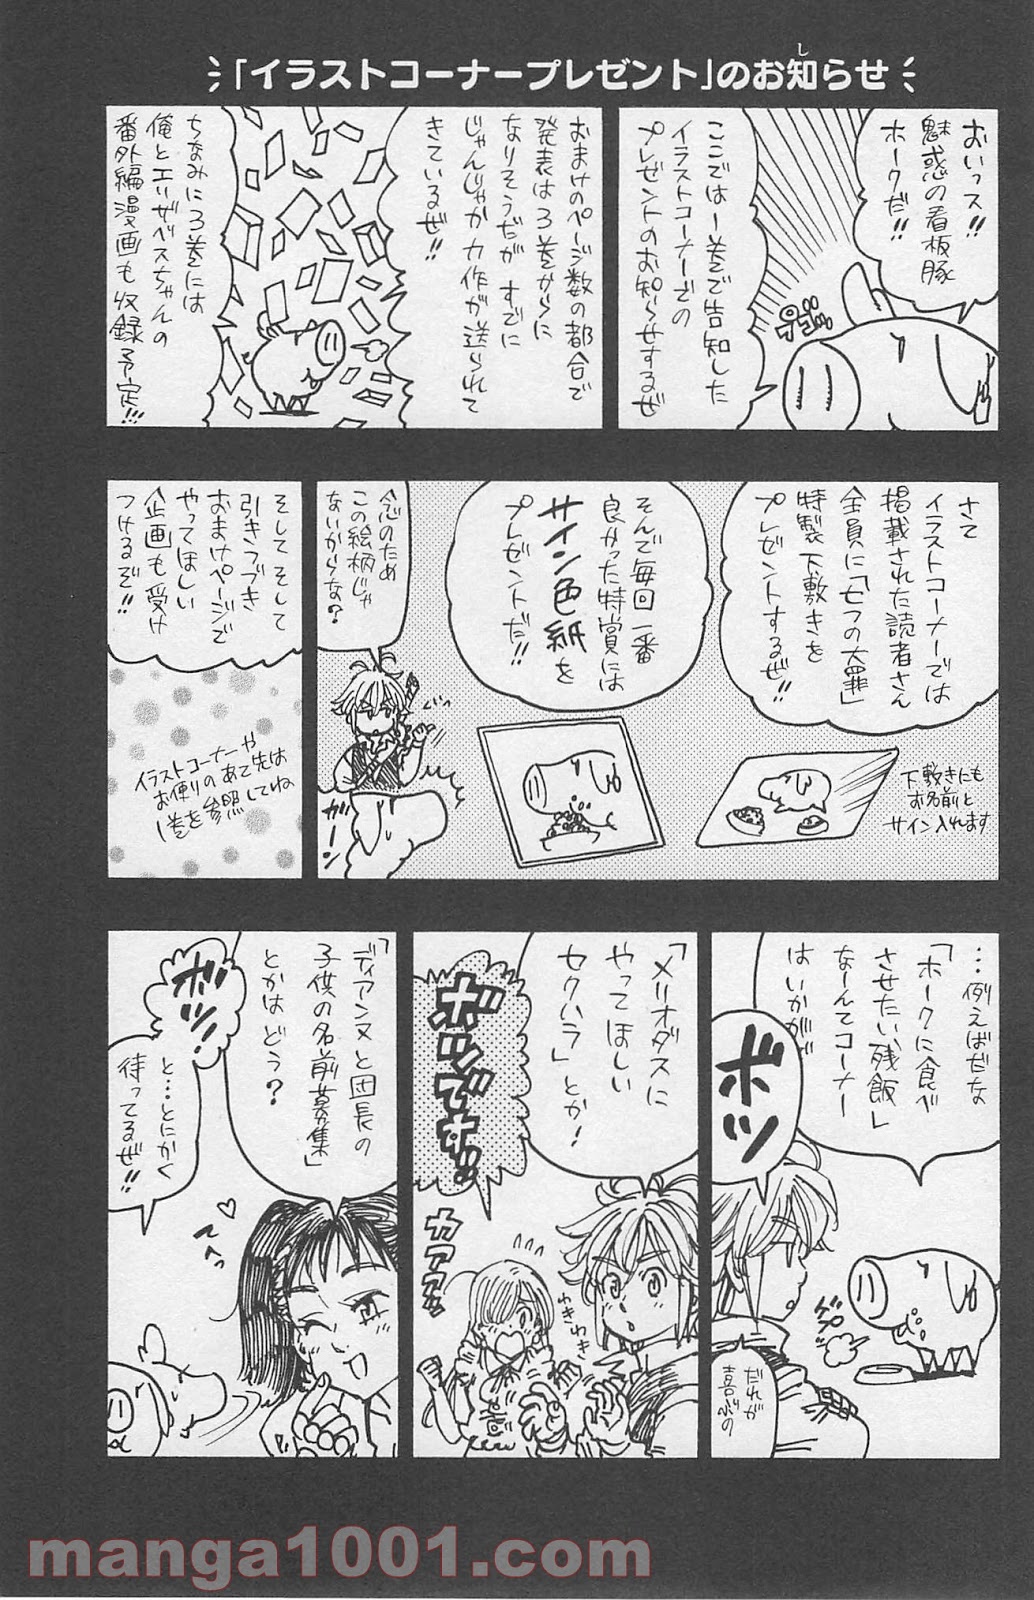 「イラストコーナープレゼント」のお知らせ
し
おいっス!!
魅惑の看板豚
ホークだ!!
プゴッ
ここでは一巻で告知した
イラストコーナーでの
プレゼントのお知らせするぜ
おまけのページ数の都合で
発表は3巻からに
なりそうだが すでに
じゃんじゃか力作が送られて
きているぜ!!
ちなみに3巻には
俺とエリザベスちゃんの
番外編漫画も収録予定!!!
さて
イラストコーナーでは
掲載された読者さん
全員に「七つの大罪」
特製下敷きを
プレゼントするぜ!!
下敷きにも
お名前と
サイン入れます
そんで毎回一番
良かった特賞には
サイン色紙を
プレゼントだ!!
念のため
この絵柄じゃ
ないからな?
ガーン
そしてそして
引きつづき
おまけページで
やってほしい
企画も受け
つけるぞ!!
イラストコーナーや
お便りのあて先は
1巻を参照してね
…例えばだな
「ホークに食べ
させたい残飯」
なーんてコーナー
はいかが
ボツ
ゲプ
だれが
喜ぶの
「メリオダスに
やってほしい
セクハラ」とか!
ボツです!!
カアアァッ
わきわき
「ディアンヌと団長の
子供の名前募集」
とかはどう?
ボツ!
てへっ
と…とにかく
待ってるぜ!!
manga1001.com